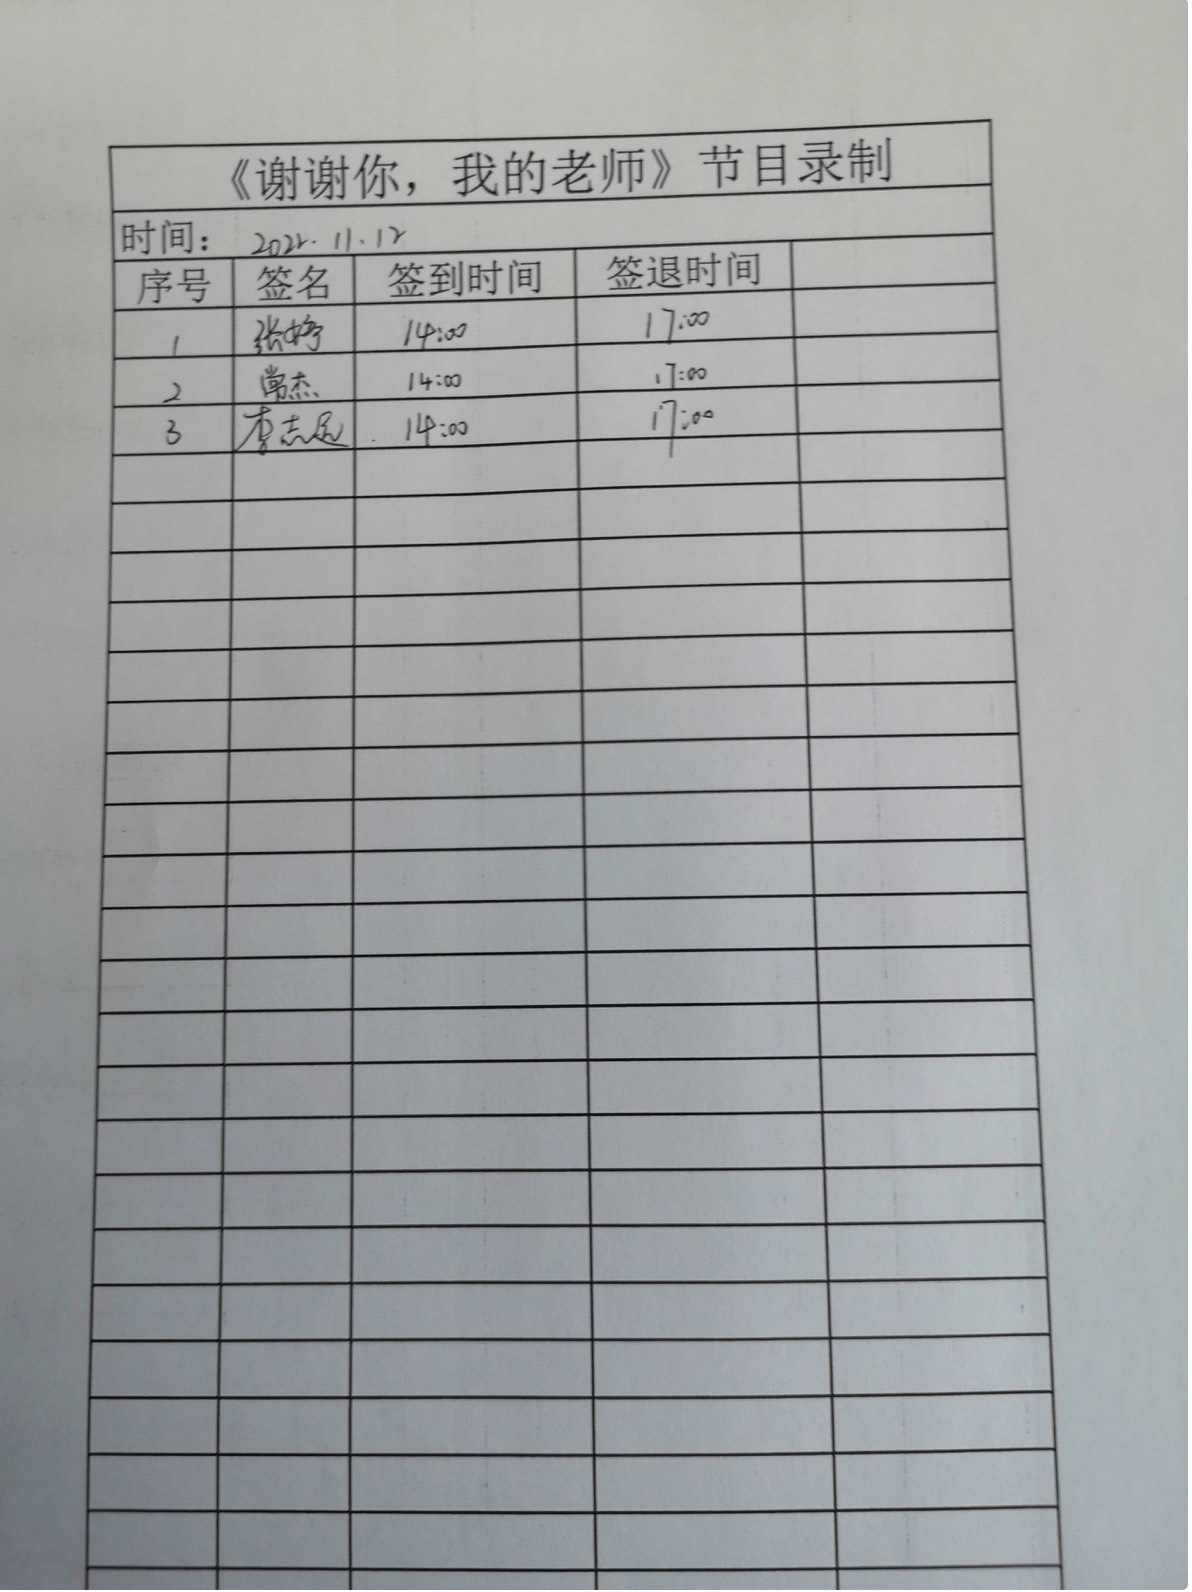 《谢谢你，我的老师》节目录制
时间： 2022.11.12
序号 签名 签到时间 签退时间
1 张婷 14:00 17:00
2 常杰 14:00 17:00
3 李志 14:00 17:00